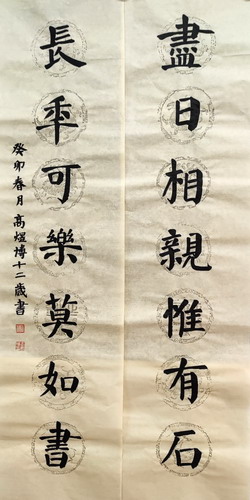 盡日相親惟有石
長年可樂莫如書
癸卯春月高煜博十二歲書